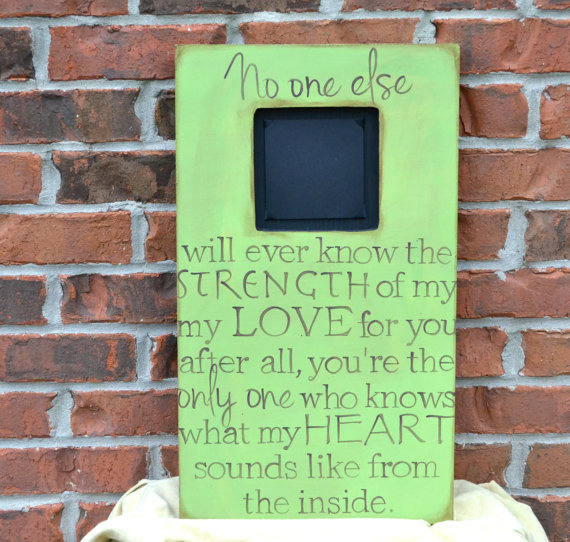 No one else
will ever know the
STRENGTH of my
my LOVE for you
after all, you're the
only one who knows
what my HEART
sounds like from
the inside.